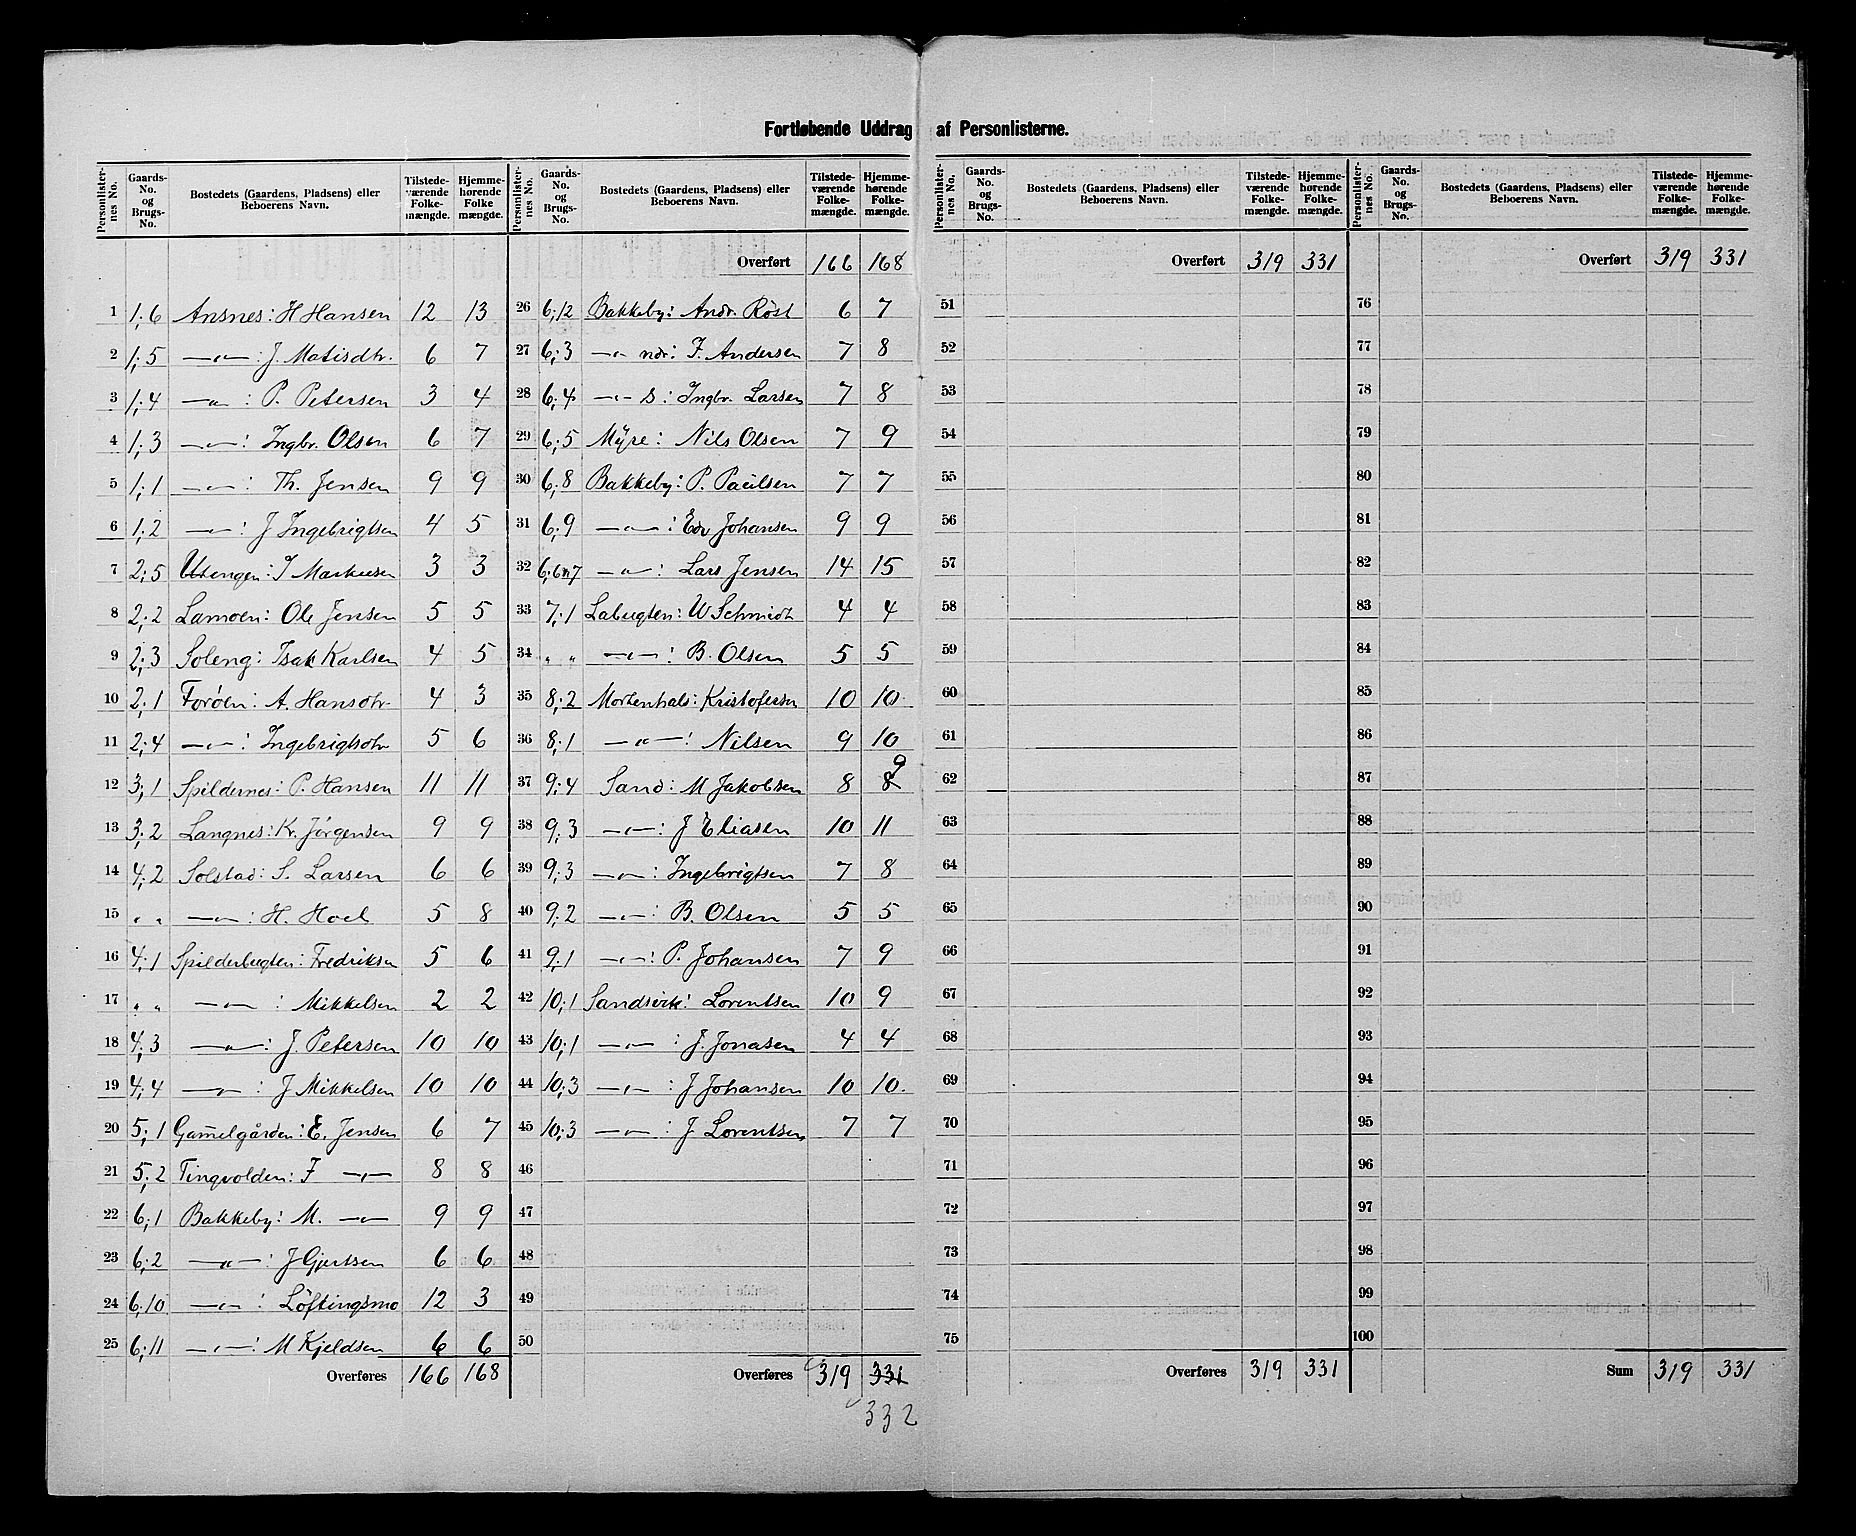 Fortløbende Uddrag af Personlisterne.
Personlisternes No. | Gaards-No. og Brugs-No. | Bostedets (Gaardens, Pladsens) eller Beboerens Navn. | Tilstedeværende Folkemængde. | Hjemmehørende Folkemængde.
1 | 1;6 | Ansnes: H Hansen | 12 | 13
2 | 1;5 | —„—: J. Matisdtr. | 6 | 7
3 | 1;4 | —„—: P. Petersen | 3 | 4
4 | 1;3 | —„—: Ingbr. Olsen | 6 | 7
5 | 1;1 | —„—: Th. Jensen | 9 | 9
6 | 1;2 | —„—: J Ingebrigtsen | 4 | 5
7 | 2;5 | Utengen: J Markusen | 3 | 3
8 | 2;2 | Lamoen: Ole Jensen | 5 | 5
9 | 2;3 | Soleng: Isak Karlsen | 4 | 5
10 | 2;1 | Forøen: A. Hansdtr. | 4 | 3
11 | 2;4 | —„—: Ingebrigtsdtr | 5 | 6
12 | 3;1 | Spildernes: P. Hansen | 11 | 11
13 | 3;2 | Langnes: Kr. Jørgensen | 9 | 9
14 | 4;2 | Solstad: S. Larsen | 6 | 6
15 | „ „ | —„—: H. Hoel | 5 | 8
16 | 4;1 | Spilderbugten: Fredriksen | 5 | 6
17 | „ „ | —„—: Mikkelsen | 2 | 2
18 | 4;3 | —„—: J. Petersen | 10 | 10
19 | 4;4 | —„—: J Mikkelsen | 10 | 10
20 | 5;1 | Gam̅elgården: E. Jensen | 6 | 7
21 | 5;2 | Tingvolden: F —„— | 8 | 8
22 | 6;1 | Bakkeby: M. —„— | 9 | 9
23 | 6;2 | —„—: J Gjertsen | 6 | 6
24 | 6;10 | —„—: Løftingsmo | 12 | 3
25 | 6;11 | —„—: M Kjeldsen | 6 | 6
Overføres | 166 | 168
Personlisternes No. | Gaards-No. og Brugs-No. | Bostedets (Gaardens, Pladsens) eller Beboerens Navn. | Tilstedeværende Folkemængde. | Hjemmehørende Folkemængde.
Overført | 166 | 168
26 | 6;12 | Bakkeby: Andr. Röst | 6 | 7
27 | 6;3 | —„— ndr: J. Andersen | 7 | 8
28 | 6;4 | —„— S: Ingbr. Larsen | 7 | 8
29 | 6;5 | Myre: Nils Olsen | 7 | 9
30 | 6;8 | Bakkeby: P. Paulsen | 7 | 7
31 | 6;9 | —„—: Edv Johansen | 9 | 9
32 | 6;6n7 | —„—: Lars Jensen | 14 | 15
33 | 7;1 | Labugten: W Schmidt | 4 | 4
34 | „ „ | —„—: B. Olsen | 5 | 5
35 | 8;2 | Mortenhals: Kristofersen | 10 | 10
36 | 8;1 | —„—: Nilsen | 9 | 10
37 | 9;4 | Sand: M Jakobsen | 8 | 8 9
38 | 9;3 | —„—: J Eliasen | 10 | 11
39 | 9;3 | —„—: Ingebrigtsen | 7 | 8
40 | 9;2 | —„—: B. Olsen | 5 | 5
41 | 9;1 | —„—: P. Johansen | 7 | 9
42 | 10;1 | Sandsvik: Lorentsen | 10 | 9
43 | 10;1 | —„—: J. Jonasen | 4 | 4
44 | 10;3 | —„—: J Johansen | 10 | 10.
45 | 10;3 | —„—: J Lorentsen | 7 | 7
46
47
48
49
50
Overføres | 319 | 331
332
Personlisternes No. | Gaards-No. og Brugs-No. | Bostedets (Gaardens, Pladsens) eller Beboerens Navn. | Tilstedeværende Folkemængde. | Hjemmehørende Folkemængde.
Overført | 319 | 331
51
52
53
54
55
56
57
58
59
60
61
62
63
64
65
66
67
68
69
70
71
72
73
74
75
Overføres | 319 | 331
Personlisternes No. | Gaards-No. og Brugs-No. | Bostedets (Gaardens, Pladsens) eller Beboerens Navn. | Tilstedeværende Folkemængde. | Hjemmehørende Folkemængde.
Overført | 319 | 331
76
77
78
79
80
81
82
83
84
85
86
87
88
89
90
91
92
93
94
95
96
97
98
99
100
Sum | 319 | 331